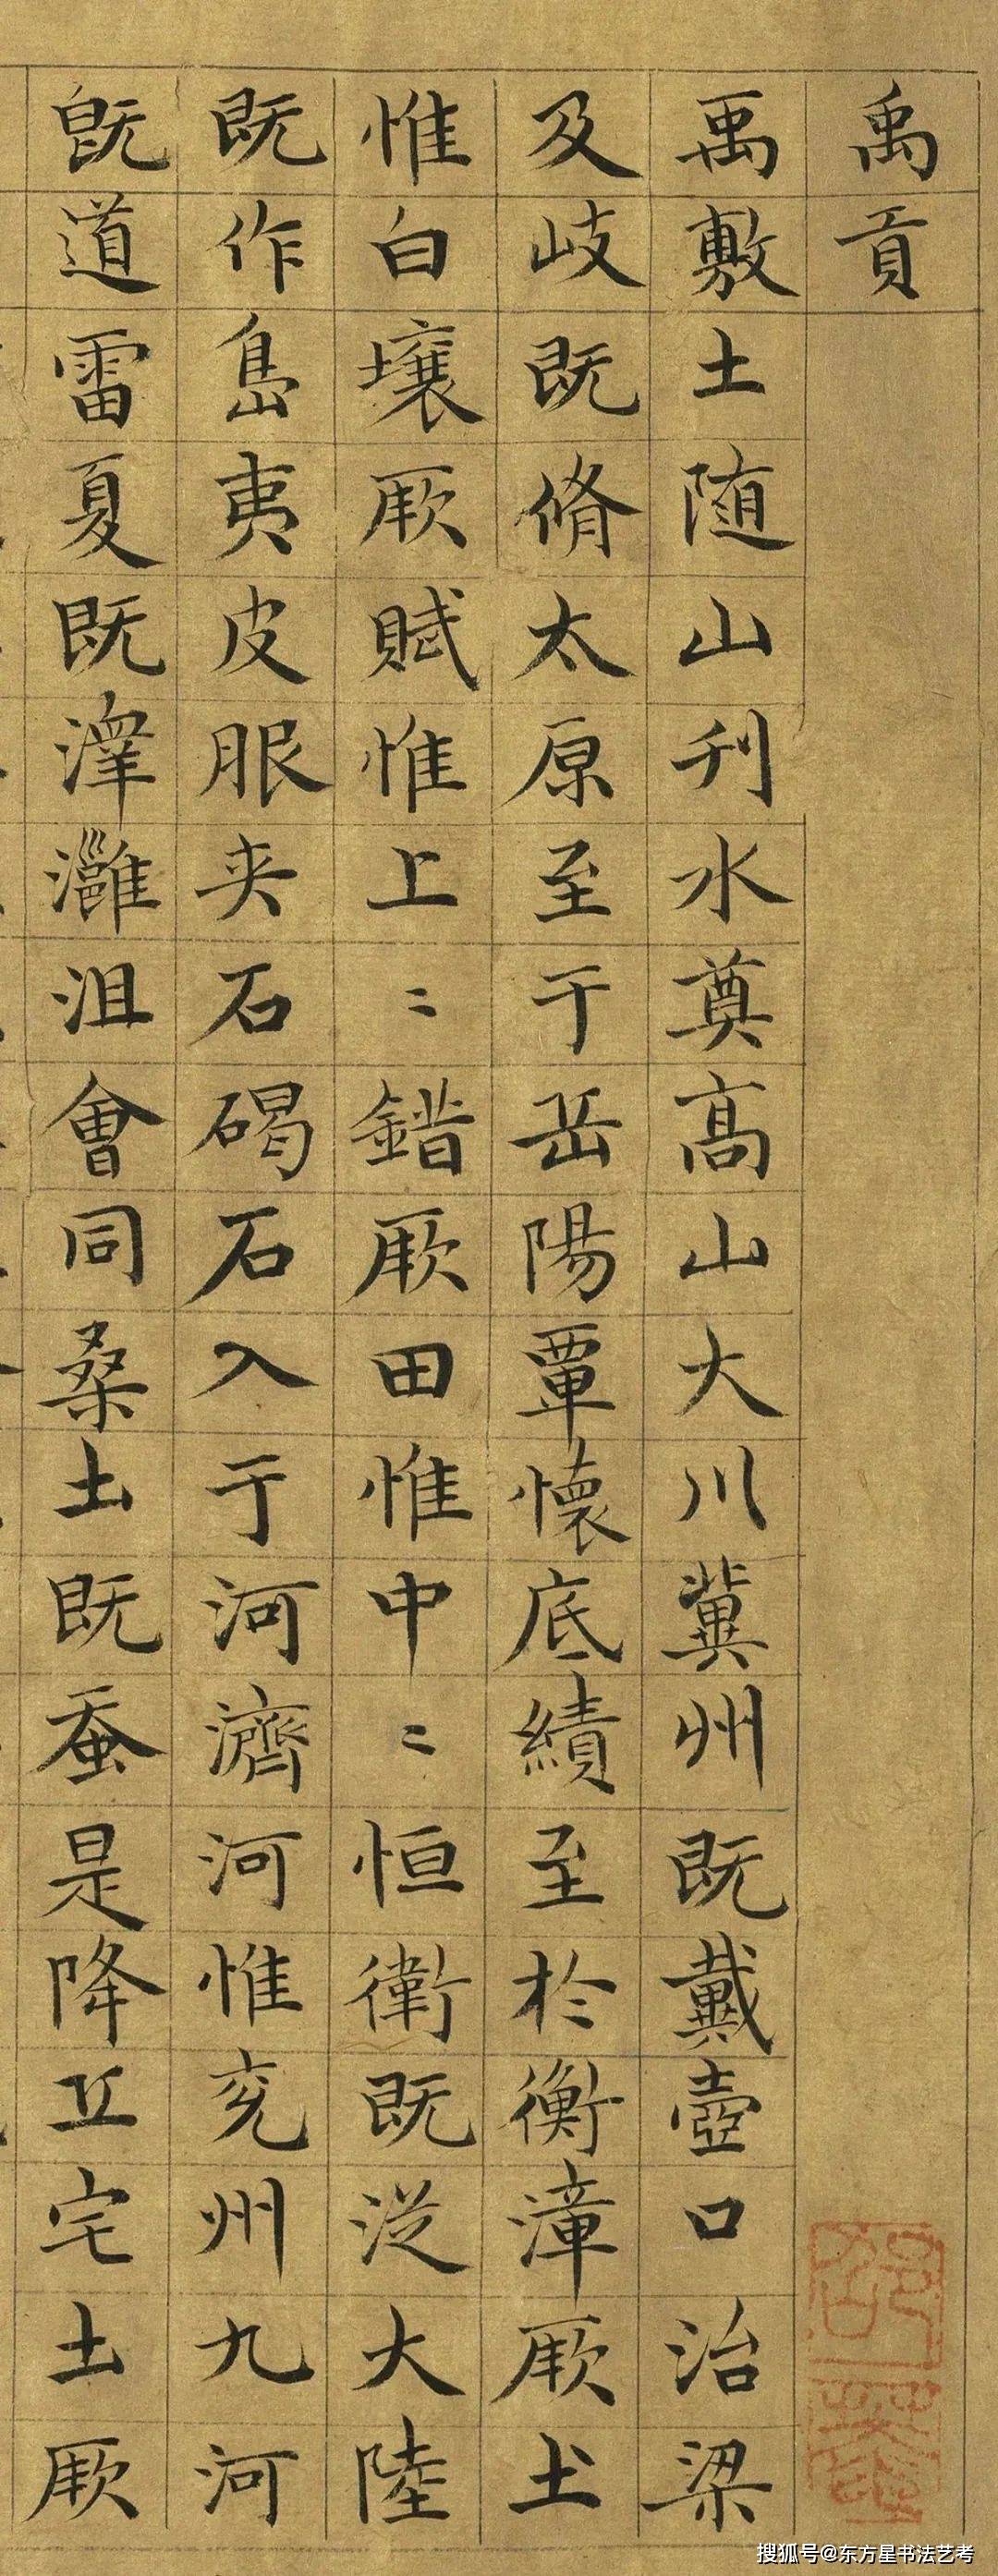 禹貢
禹敷土随山刋水奠髙山大川冀州既戴壺口治梁
及岐既脩太原至于岳陽覃懷底績至於衡漳厥土
惟白壤厥賦惟上〻錯厥田惟中〻恒衛既従大陸
既作島夷皮服夾石碣石入于河濟河惟兖州九河
既道雷夏既澤灉沮會同桑土既蚕是降丘宅土厥
搜狐号@东方星书法艺考